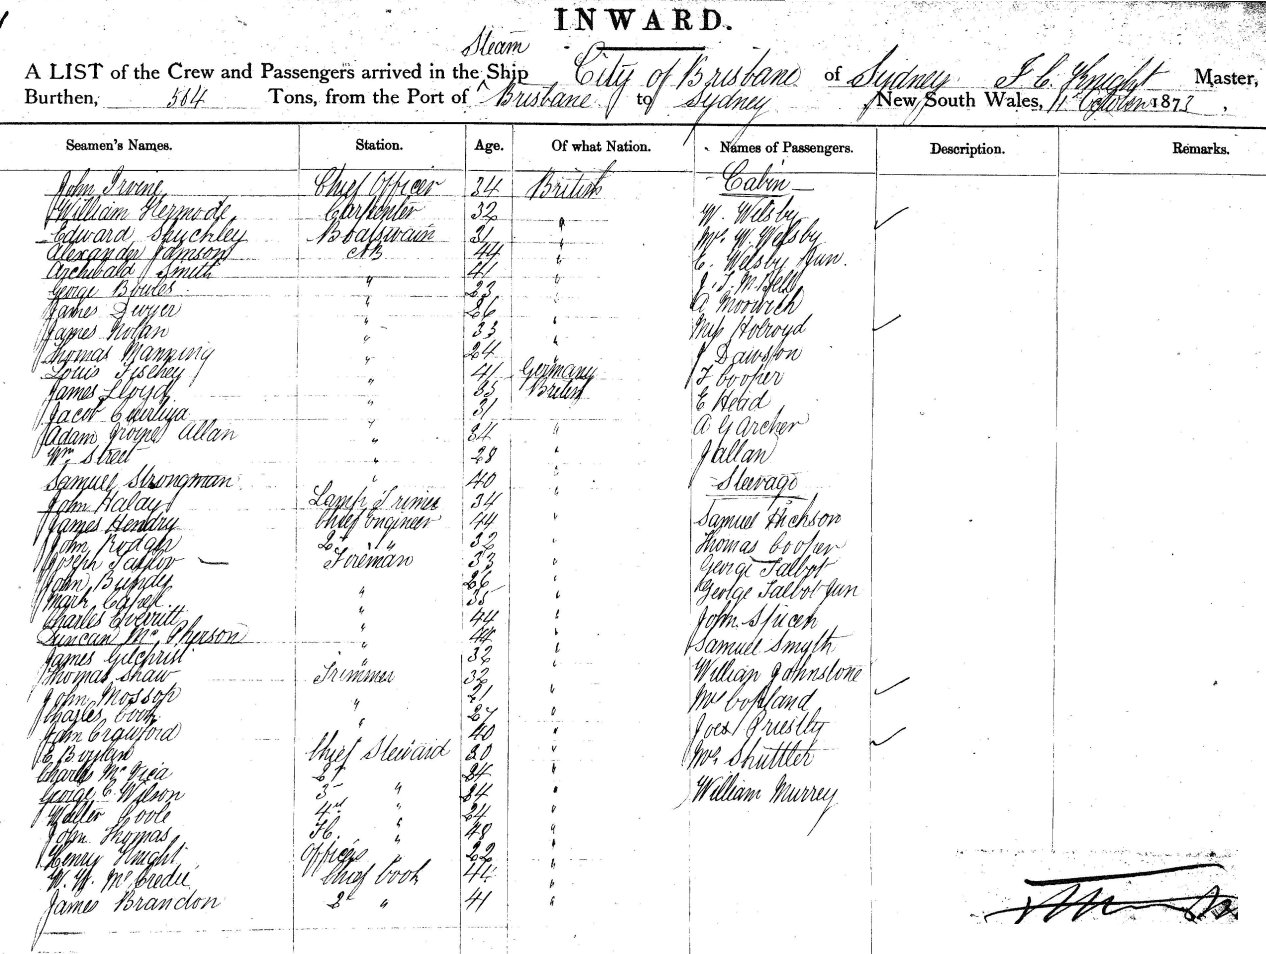 INWARD.
Steam
A LIST of the Crew and Passengers arrived in the Ship City of Brisbane of Sydney Master,
Burthen, 504 Tons, from the Port of Brisbane to Sydney New South Wales, October 1873,
Seamen's Names. Station. Age. Of what Nation. Names of Passengers. Description. Remarks.
John Irvine Chief Officer 34 British Cabin
William Kermode Carpenter 32 " W. Welsby
Edward Boatswain 31 " Mrs W. Welsby
Alexander Jamson AB 44 " C. Welsby Jun.
Archibald Smith 41 "
George Bowles " 23 "
James Dwyer " 26 Miss Holroyd
James Nolan " 33 " J Dawson
Thomas Manning " 24
Louis " 41 Germany T Cooper
James Lloyd " 35 British E Head
Jacob " 31 A G Archer
Adam Irvine Allan " 34 " J Allan
Wm Street " 28 "
Samuel Strongman " 40 " Steerage
John Halay Lamp Trimer 34 "
James Hendry Chief Engineer 44 " Samuel Hickson
John Rodger 2nd " 32 " Thomas Cooper
Joseph Taylor Fireman 33 " George Talbot
John Bundy 26 " George Talbot Jun
Mark " 35 "
Charles Everitt " 44 " John Spicer
Duncan McPherson " 44 " Samuel Smyth
James Gilchrist " 32 "
Thomas Shaw Trimmer 32 " William Johnstone
John Mossop " 21 " Mr Copland
Charles Cook 27 "
John Crawford " 40 " Priestly
E Boykin Chief Steward 30 " Mrs Shuttler
Charles 2nd 24 "
George C. Wilson 3rd " 24 " William Murrey
Walter Coole 4th " 24 "
John Thomas " 48 "
Henry Knight Officers 22 "
W. W. McCredie Chief Cook 44 "
James Brandon 2nd " 41 "